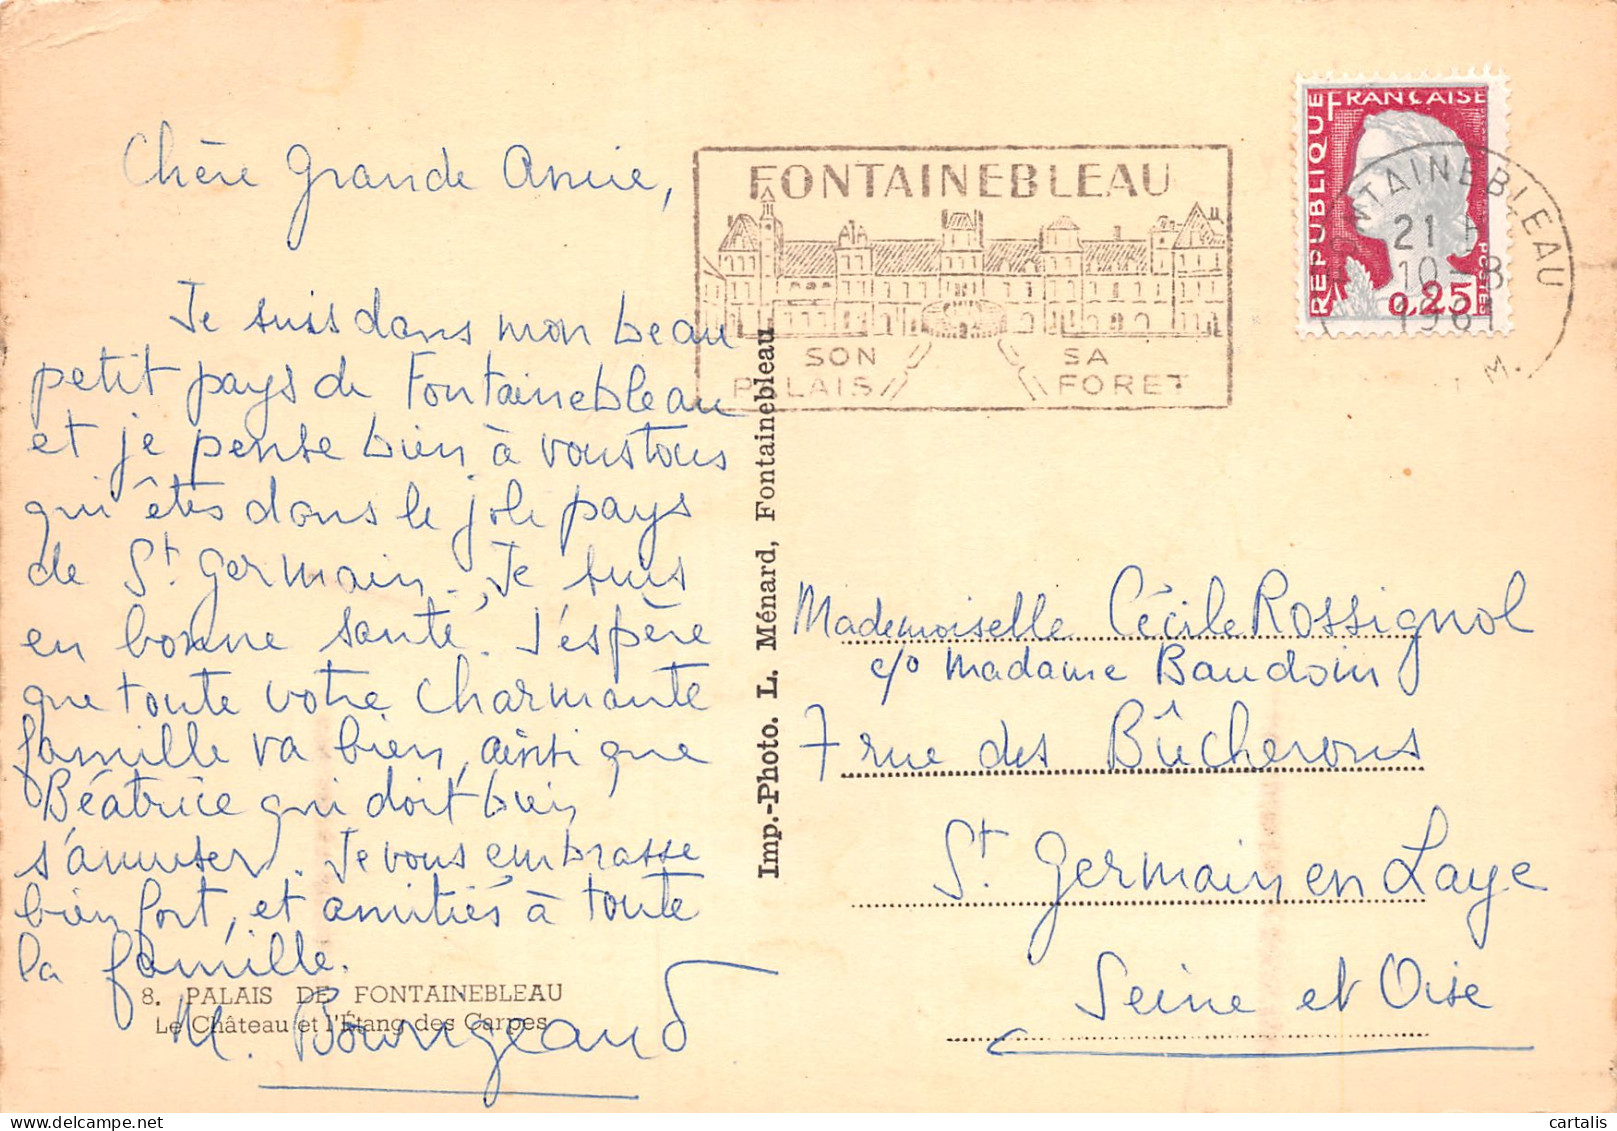 Chère Grande Amie,
Je suis dans mon beau
petit pays de Fontainebleau
et je pense bien à vous tous
qui êtes dans le joli pays
de St Germain. Je suis
en bonne santé. J'espère
que toute votre charmante
famille va bien, ainsi que
Béatrice qui doit bien
s'amuser. Je vous embrasse
bien fort, et amitiés à toute
la famille.
8. PALAIS DE FONTAINEBLEAU
Le Château et l'Étang des Carpes
M. Bourgeaud
Imp.-Photo. L. Ménard, Fontainebleau
FONTAINEBLEAU
SON PALAIS
SA FORET
REPUBLIQUE FRANÇAISE
POSTES
0,25
FONTAINEBLEAU
21 H
10-8
1961
Mademoiselle Cécile Rossignol
c/o Madame Baudoin
7 rue des Bûcherons
St Germain en Laye
Seine et Oise
cartalis